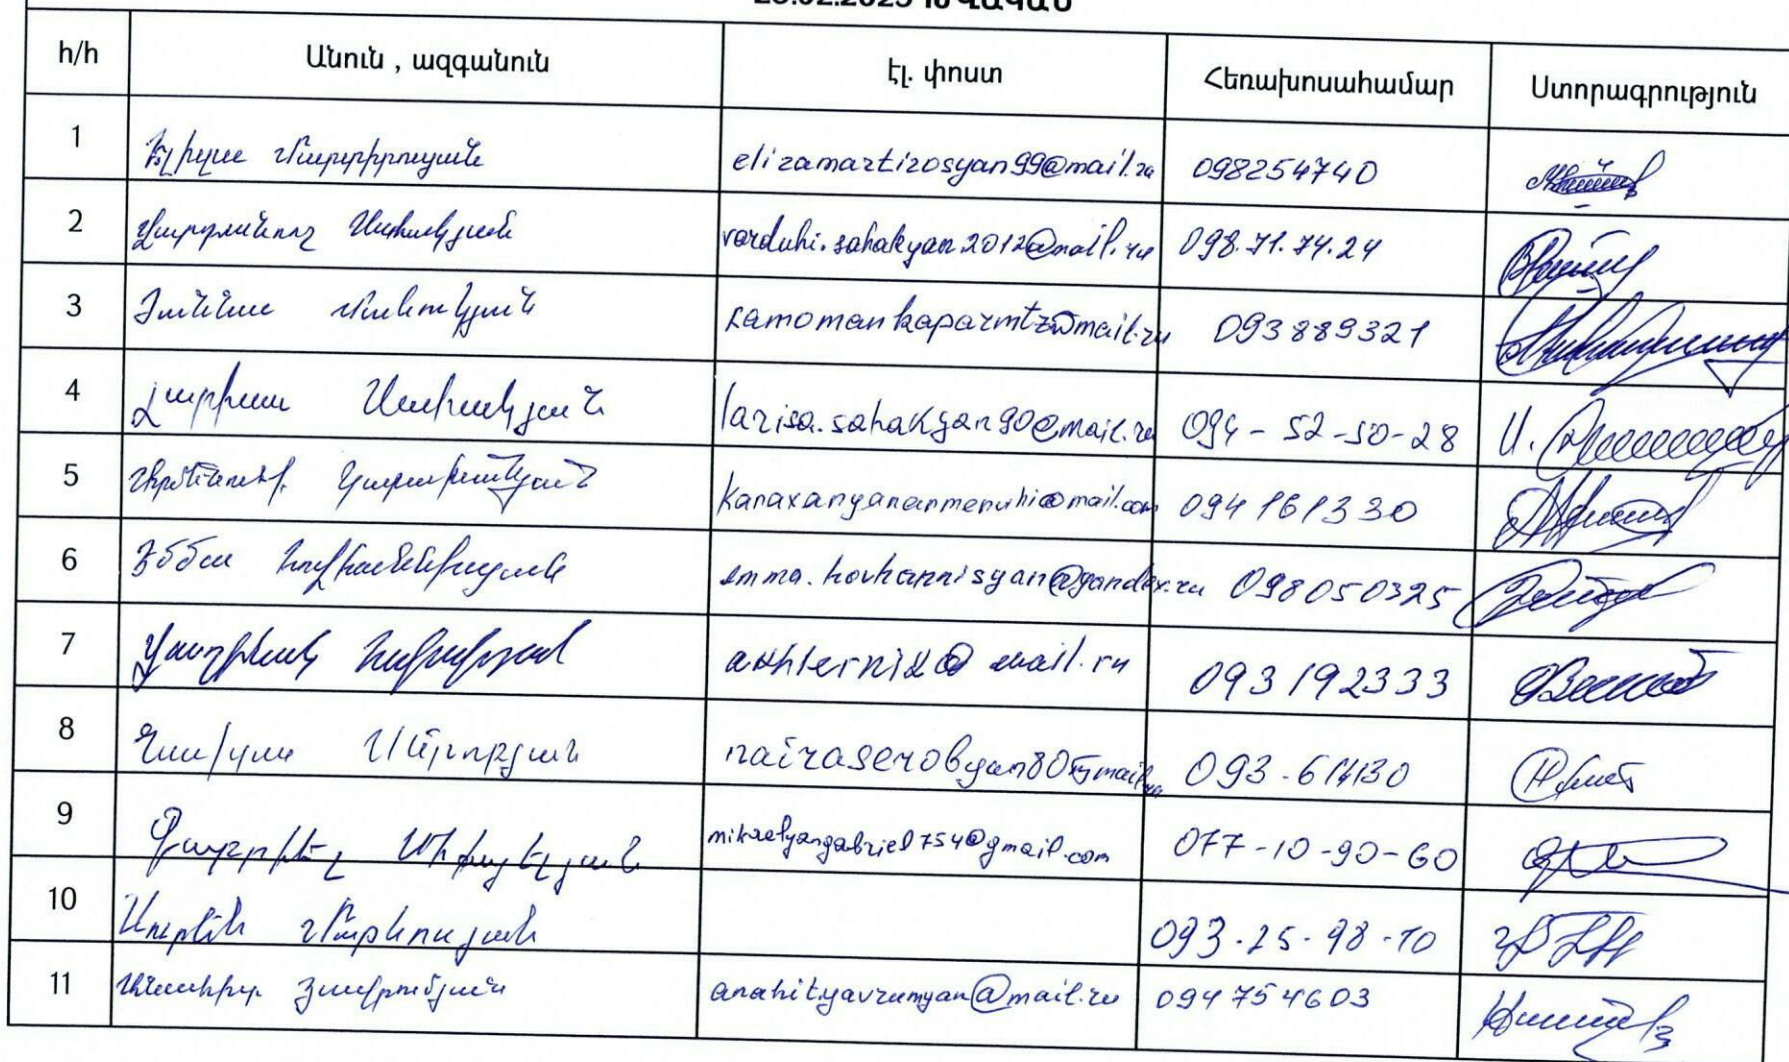 հ/հ Անուն , ազգանուն էլ. փոստ Հեռախոսահամար Ստորագրություն
1 Էլիզա Մարտիրոսյան elizamartirosyan99@mail.ru 098254740
2 Վարդանուշ Սահակյան varduhi.sahakyan2012@mail.ru 098.71.74.24
3 Ժաննա Մանուկյան 093889321
4 Լարիսա Սահակյան larisa.sahakyan90@mail.ru 094-52-50-28
5 Արմենուհի Կարախանյան karaxanyanarmenuhi@mail.com 094161330
6 Էմմա Հովհաննիսյան emma.hovhannisyan@yandex.ru 098050325
7 093192333
8 Նաիրա Սերոբյան nairaserobyan80@mail.ru 093-614130
9 Գաբրիել Միքայելյան mikaelyangabriel754@gmail.com 077-10-90-60
10 Սուրեն Մարկոսյան 093-25-98-10
11 Անահիտ Յավրումյան anahityavrumyan@mail.ru 094754603